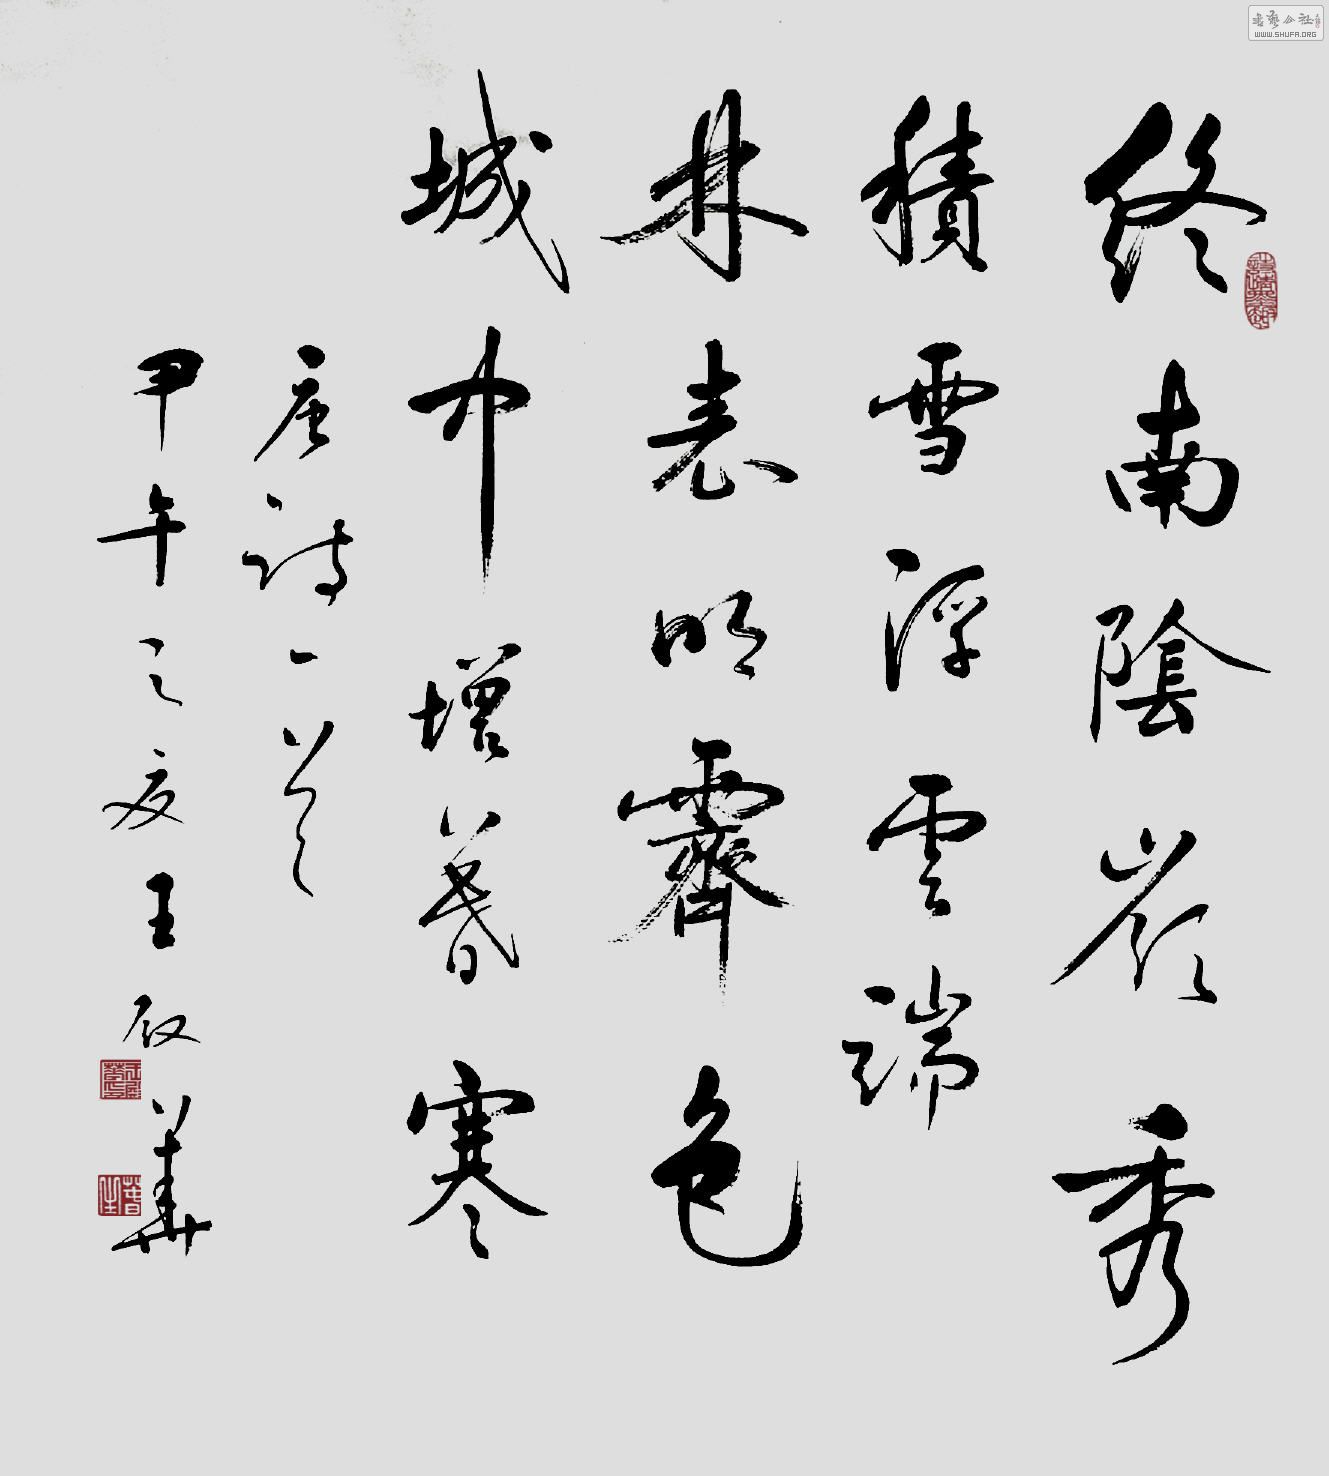 終南陰嶺秀
積雪浮雲端
林表明霽色
城中增暮寒
唐詩一首
甲午之夏王啟華
書藝公社
WWW.SHUFA.ORG